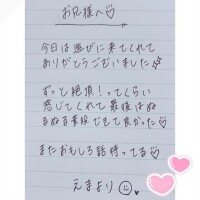 お兄様へ♡
今日は遊びに来てくれて
ありがとうございました
ずっと絶頂！ってくらい
感じてくれて最後はぬ
るぬる素股できて良かった♡
またおもしろ話待ってる♡
えまより